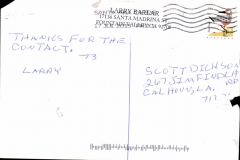 LARRY BARLAR
17136 SANTA MADRINA S
THANKS FOR THE
CONTACT.
73
LARRY
SCOTT DICKSON
267 JIM FINDLAY
RD
CALHOUN, LA.